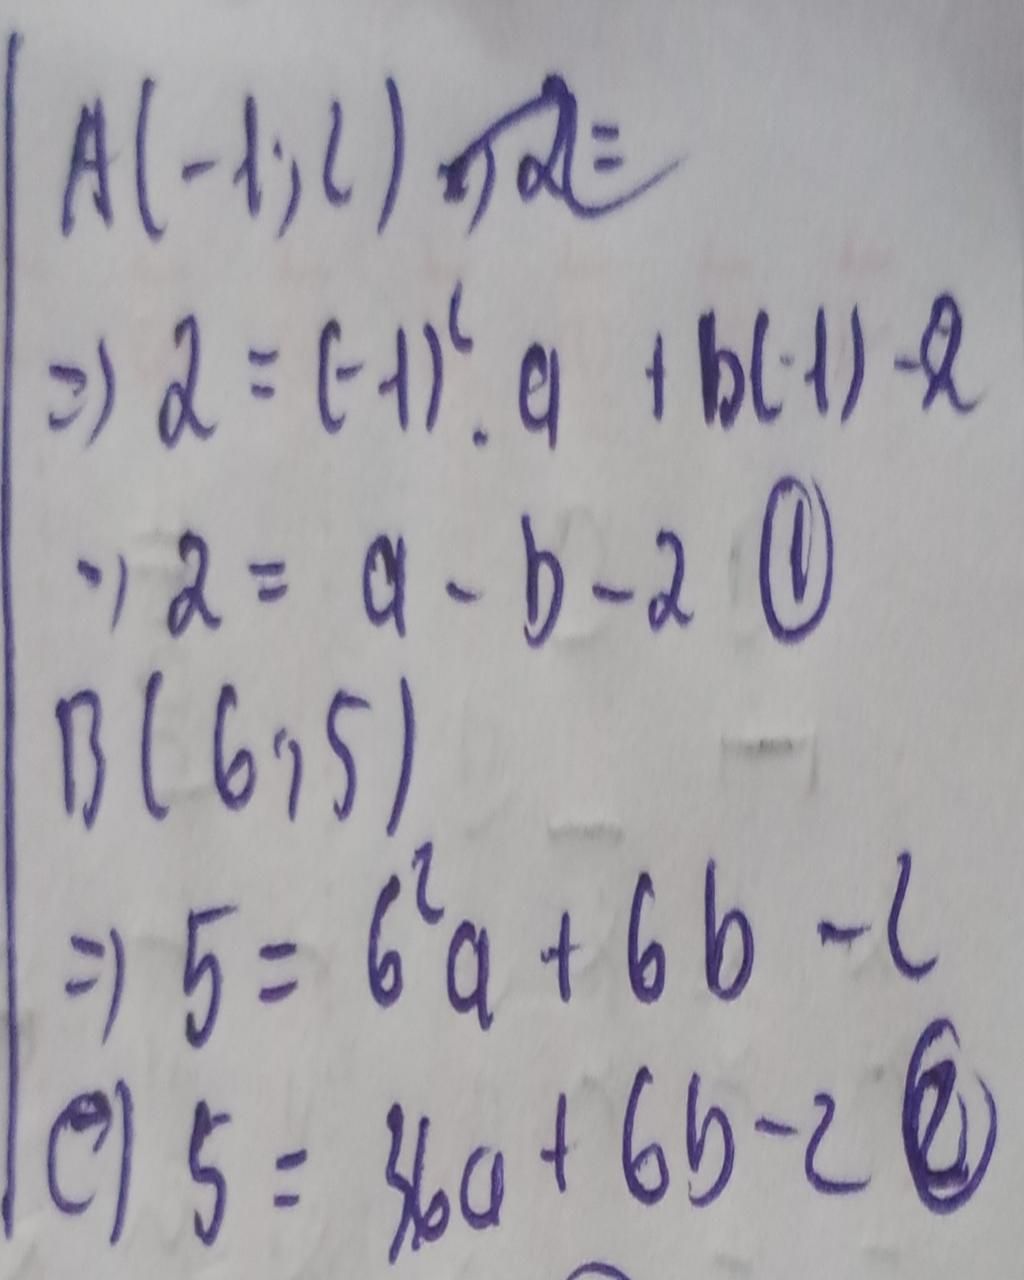 A(-1;2) => 2=
=> 2 = (-1)². a + b(-1) - 2
=> 2 = a - b - 2 ①
B(6;5)
=> 5 = 6²a + 6b - 2
(=) 5 = 36a + 6b - 2 ②